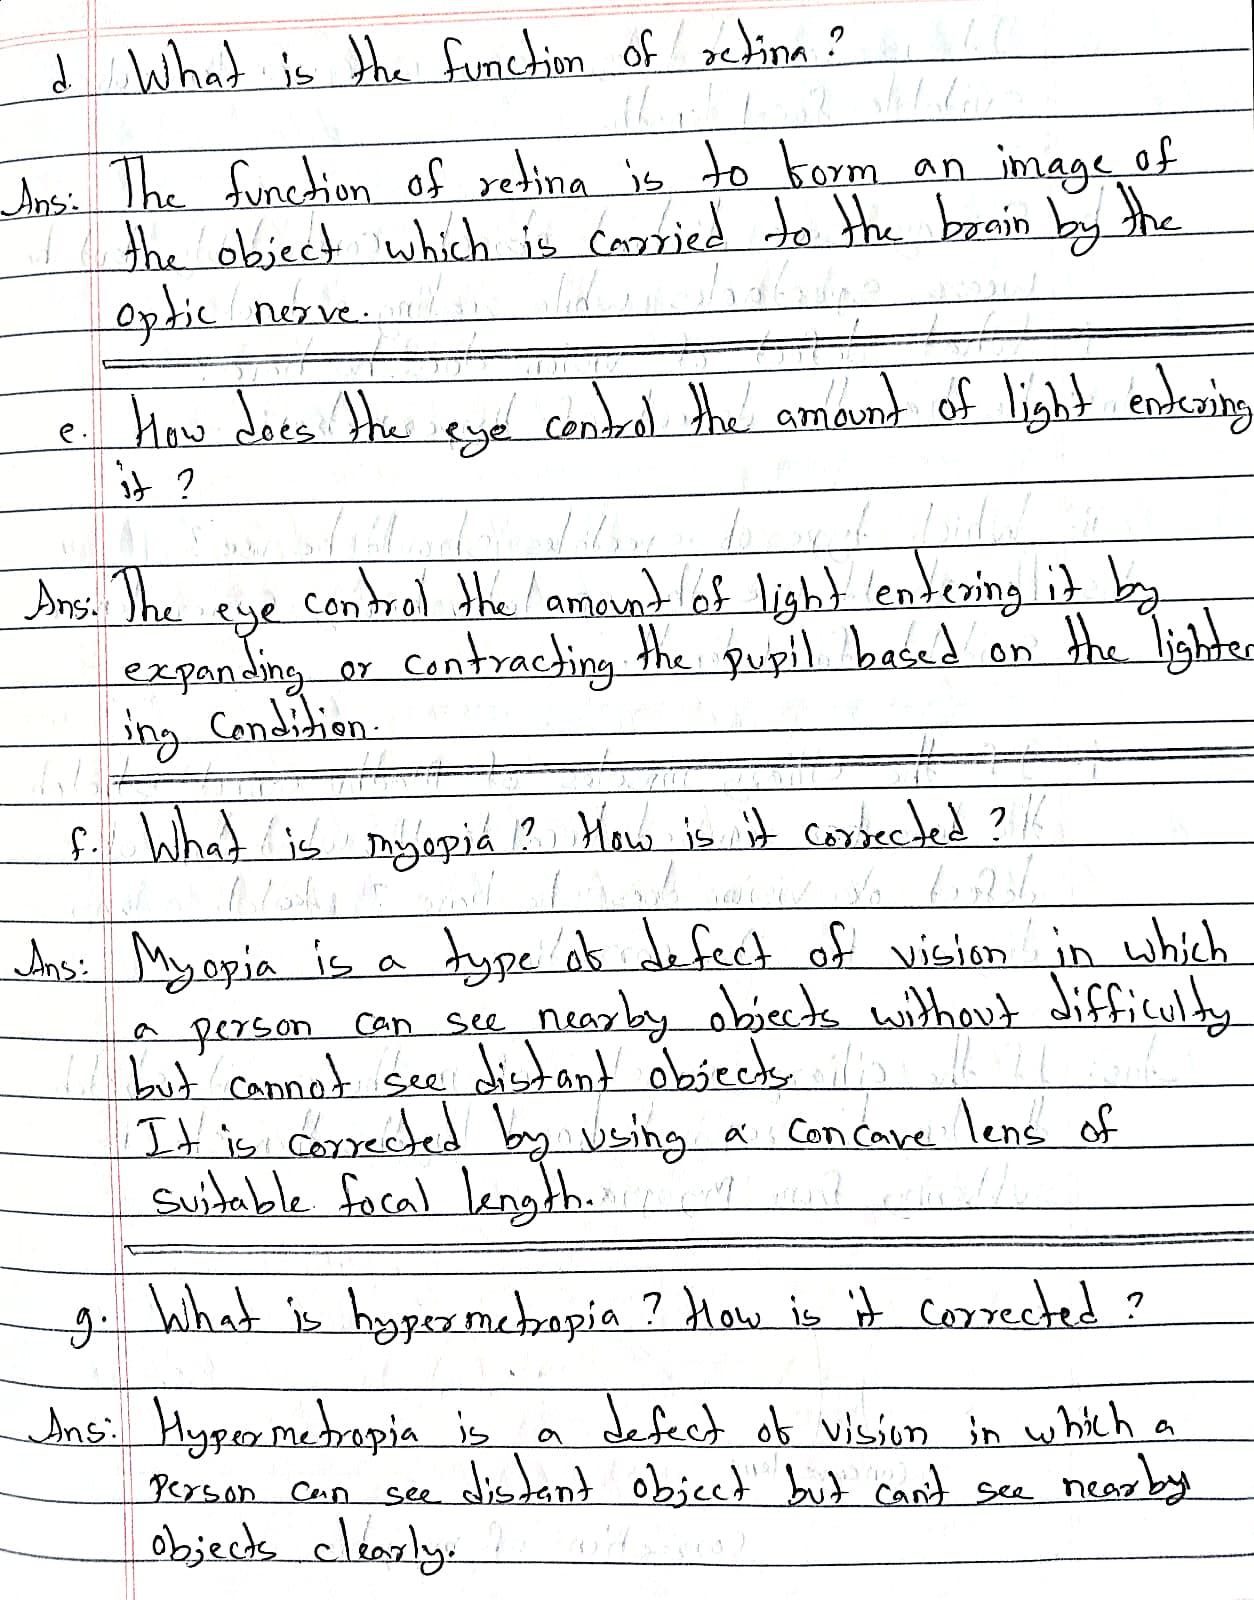 d. What is the function of retina ?
Ans: The function of retina is to form an image of
the object which is carried to the brain by the
optic nerve.
e. How does the eye control the amount of light entering
it ?
Ans: The eye control the amount of light entering it by
expanding or contracting the pupil based on the lighter
ing condition.
f. What is myopia ? How is it corrected ?
Ans: Myopia is a type of defect of vision in which
a person can see nearby objects without difficulty
but cannot see distant objects.
It is corrected by using a concave lens of
suitable focal length.
g. What is hypermetropia ? How is it corrected ?
Ans: Hypermetropia is a defect of vision in which a
person can see distant object but can't see nearby
objects clearly.